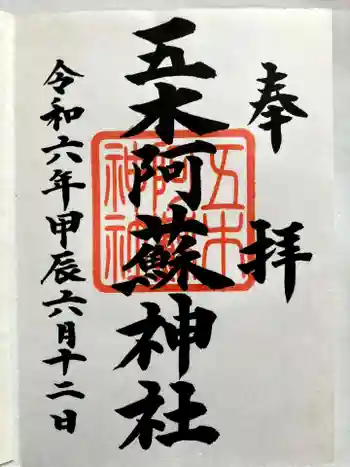 奉拝
五木阿蘇神社
五木阿蘇神社
令和六年甲辰六月十二日